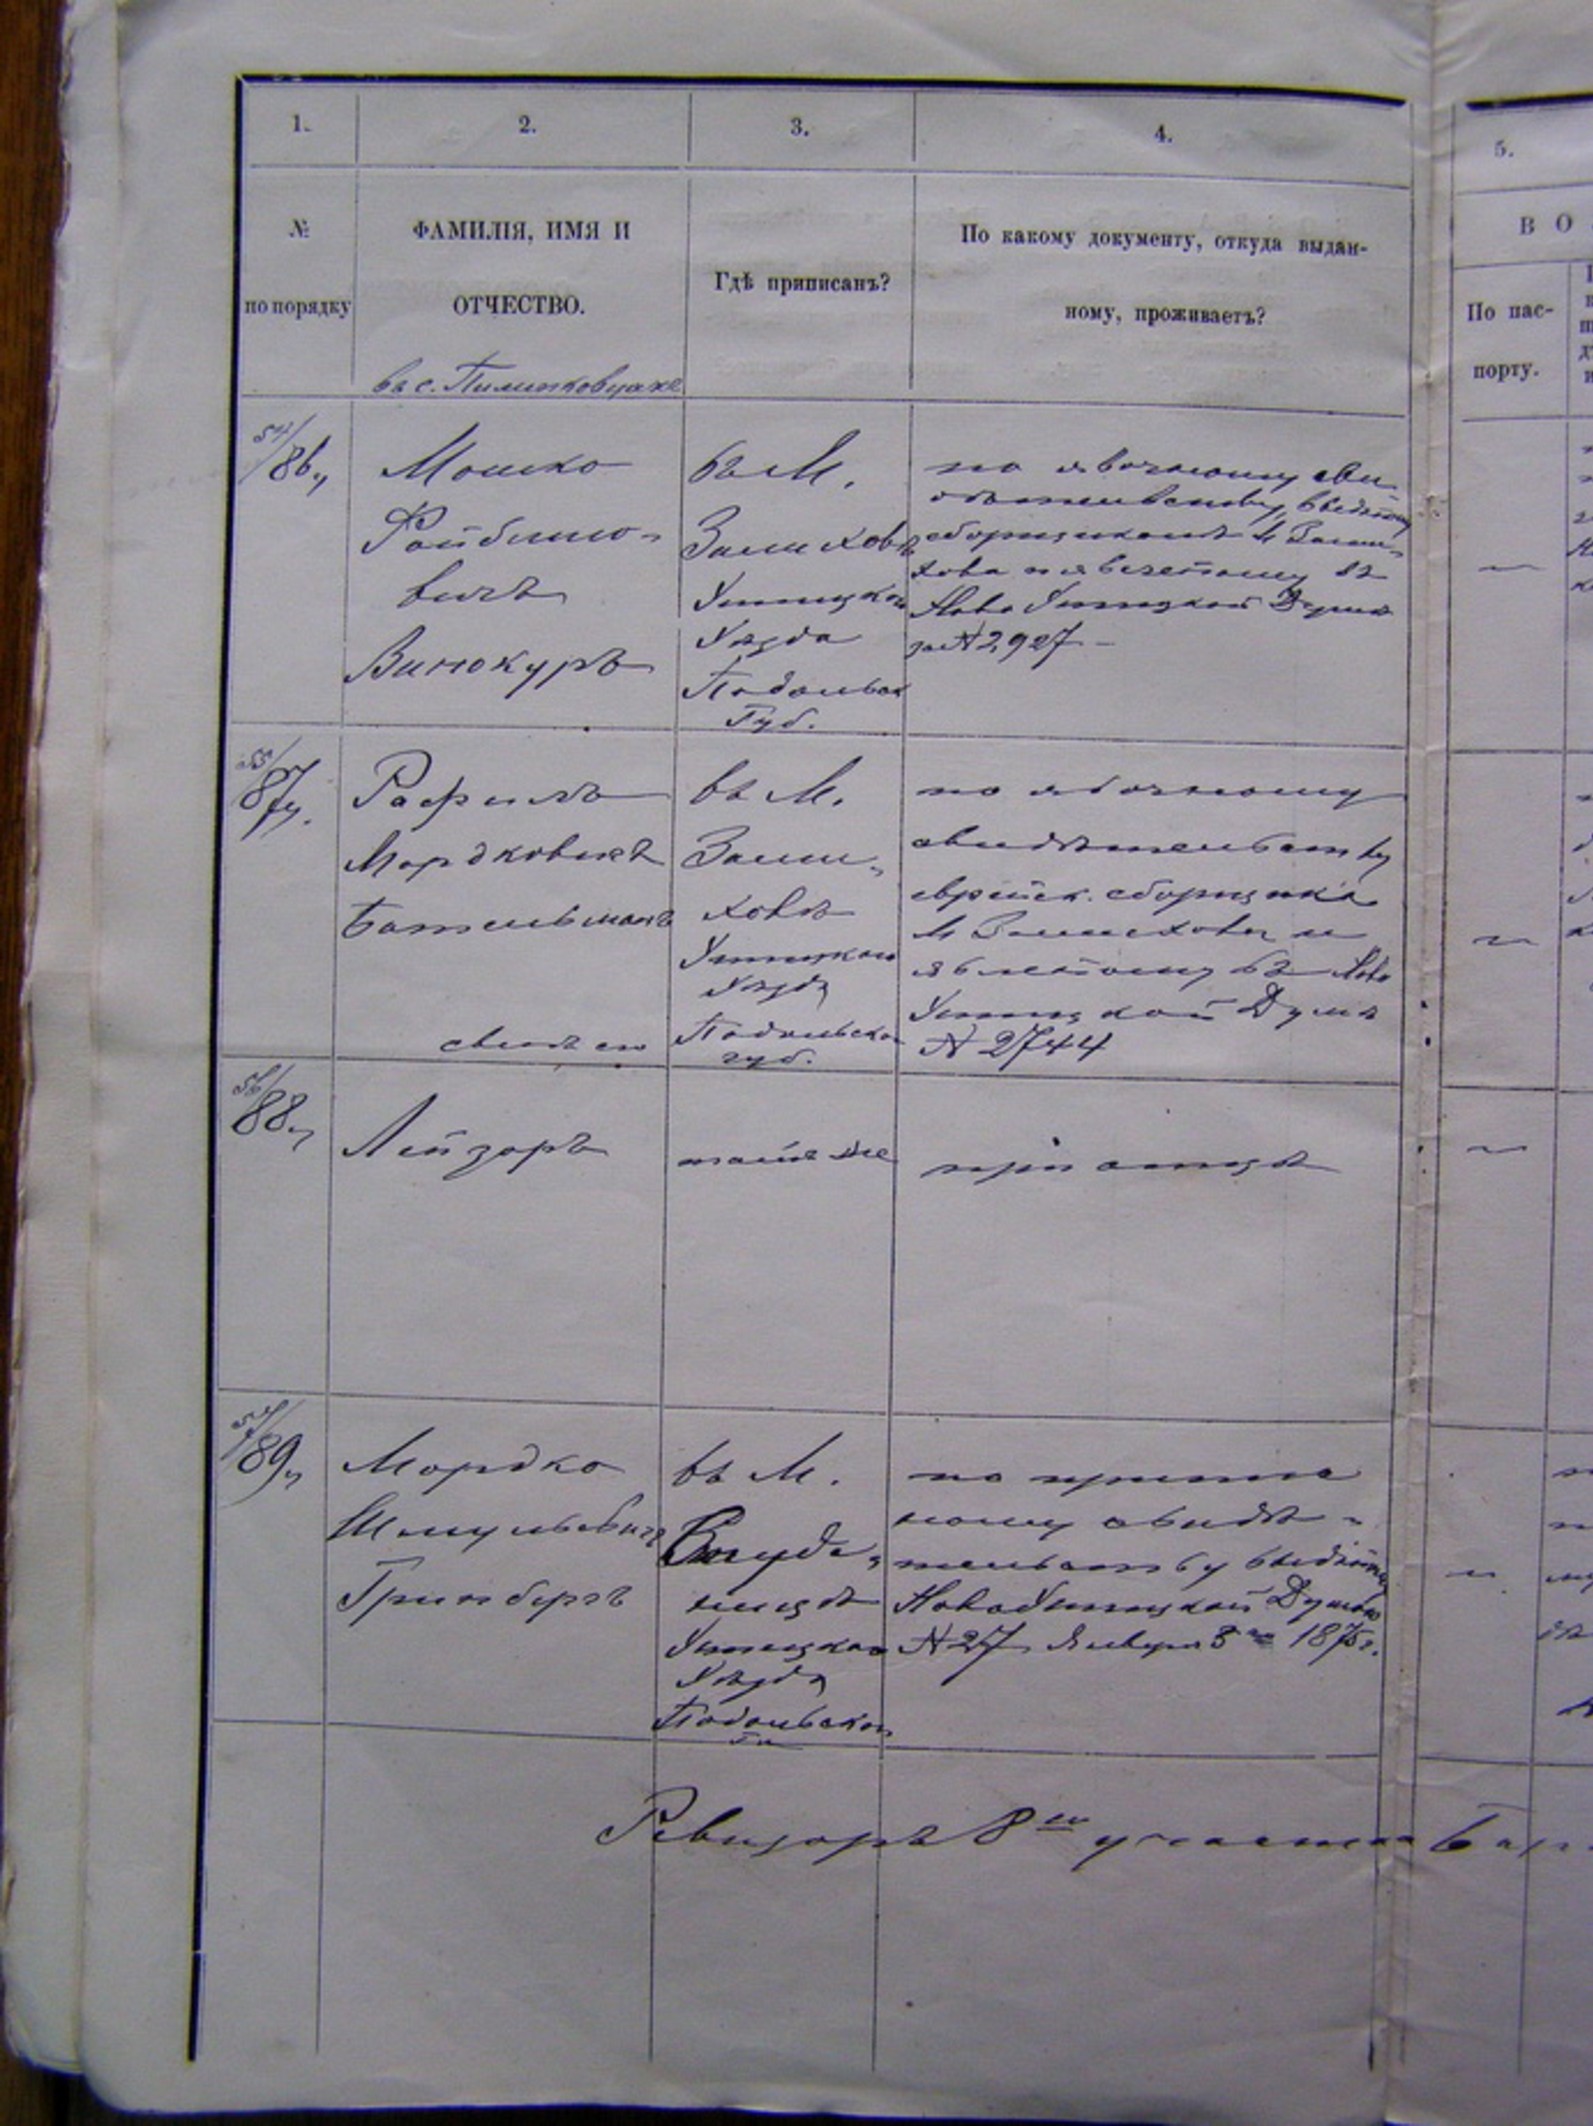 1.
2.
3.
4.
5.
№
по порядку
ФАМИЛІЯ, ИМЯ И
ОТЧЕСТВО.
Гдѣ приписанъ?
По какому документу, откуда выдан-
ному, проживаетъ?
В О
По пас-
порту.
въ с.
54/86,
Мошко
Файбишо-
вичъ
Винокуръ
въ М.
Замиховѣ
Ушицкого
Уѣзда
Подольск
Губ.
по явочному сви-
дѣтельству выданному
сборщикомъ М Зами-
хова и явленому въ
Ново Ушицкой Думѣ
за № 2,927 –
55/87,
Рафилъ
Мордковичъ
Бательманъ
сынъ его
въ М.
Зами-
ховѣ
Ушицкого
Уѣзда
Подольской
губ.
по явочному
свидѣтельству
еврейск. сборщика
М Замихова и
явленому въ Ново
Ушицкой Думѣ
№ 2744
56/88,
Лейзоръ
тамъ же
при отцѣ
57/89,
Мордко
Шмульевичъ
Гринбергъ
въ М.
Студе-
ницѣ
Ушицкого
Уѣзда
Подольской
Гу
ному свидѣ-
тельству выданному
Ново Ушицкой Думою
№ 27 Января 3 го 1875 г.
Ревизоръ 8 го участка